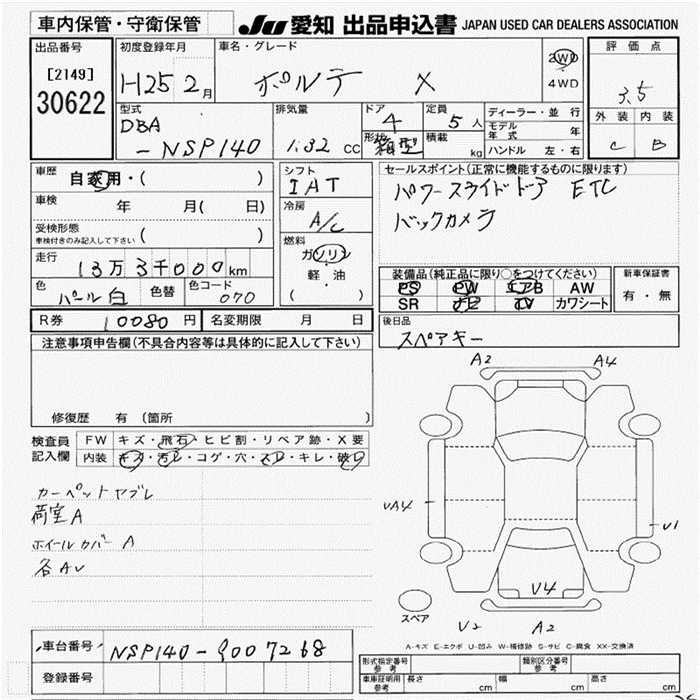 車内保管・守衛保管
JU 愛知 出品申込書 JAPAN USED CAR DEALERS ASSOCIATION
出品番号
[2149]
30622
初度登録年月
H25 2月
車名・グレード
ポルテ X
2WD
4WD
評価点
3.5
外装 内装
C B
型式
DBA
-NSP140
排気量
1.32 CC
ドア
4
形状
箱型
定員
5人
積載
kg
ディーラー・並行
モデル年式 年
ハンドル 左・右
車歴
自家用・( )
車検
年 月( 日)
受検形態
車検付きのみ記入して下さい ( )
走行
13万3千000km
色
パール白
色替
色コード
070
シフト
IAT
冷房
A/C
燃料
ガソリン
・
軽・油
( )
セールスポイント(正常に機能するものに限ります)
パワースライドドア ETC
バックカメラ
装備品(純正品に限り○をつけてください)
PS PW エアB AW
SR ナビ TV カワシート
新車保証書
有・無
R券 10080円
名変期限 月 日
後日品
スペアキー
注意事項申告欄(不具合内容等は具体的に記入して下さい)
修復歴 有 (箇所 )
検査員記入欄
FW キズ・飛石・ヒビ割・リペア跡・X要
内装 キズ・汚レ・コゲ・穴・スレ・キレ・破レ
カーペットヤブレ
荷室A
ホイールカバーA
各AU
A2 A4
UA4
U1
U4
スペア
U2 A2
A-キズ E-エクボ U-凹み W-補修跡 S-サビ C-腐食 XX-交換済
車台番号 NSP140-9007268
登録番号
形式指定番号 参考
類別区分番号 参考
車庫証明用 参考 長さ cm 幅 cm 高さ cm